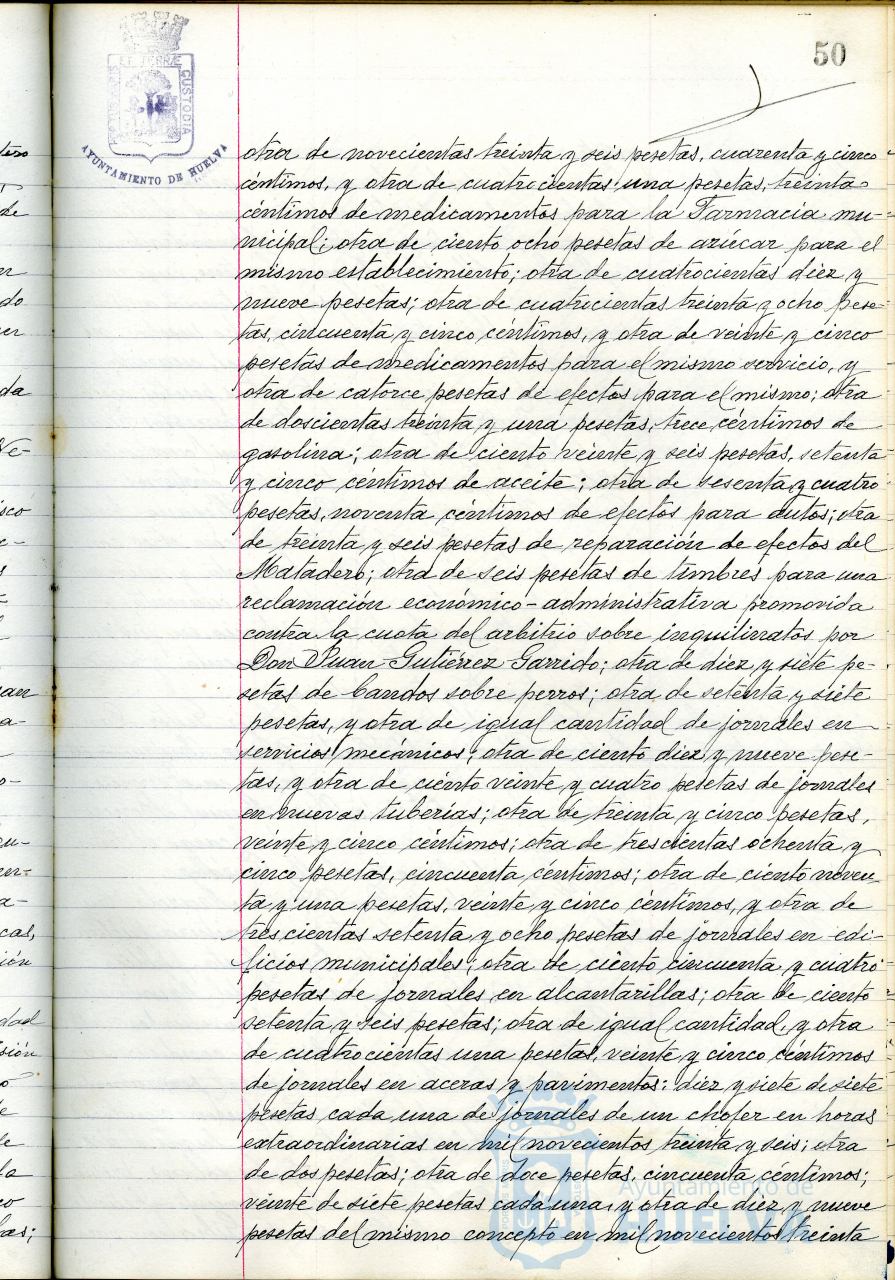 50
ET TERRÆ
CUSTODIA
AYUNTAMIENTO DE HUELVA
otra de novecientas treinta y seis pesetas, cuarenta y cinco
céntimos, y otra de cuatrocientas una pesetas, treinta
céntimos de medicamentos para la Farmacia mu-
nicipal; otra de ciento ocho pesetas de azúcar para el
mismo establecimiento; otra de cuatrocientas diez y
nueve pesetas; otra de cuatrocientas treinta y ocho pese-
tas, cincuenta y cinco céntimos, y otra de veinte y cinco
pesetas de medicamentos para el mismo servicio, y
otra de catorce pesetas de efectos para el mismo; otra
de doscientas treinta y una pesetas, trece céntimos de
gasolina; otra de ciento veinte y seis pesetas, setenta
y cinco céntimos de aceite; otra de sesenta y cuatro
pesetas, noventa céntimos de efectos para autos; otra
de treinta y seis pesetas de reparación de efectos del
Matadero; otra de seis pesetas de timbres para una
reclamación económico-administrativa promovida
contra la cuota del arbitrio sobre inquilinatos por
Don Juan Gutiérrez Garrido; otra de diez y siete pe-
setas de bandos sobre perros; otra de setenta y siete
pesetas, y otra de igual cantidad de jornales en
servicios mecánicos; otra de ciento diez y nueve pese-
tas, y otra de ciento veinte y cuatro pesetas de jornales
en nuevas tuberías; otra de treinta y cinco pesetas,
veinte y cinco céntimos; otra de trescientas ochenta y
cinco pesetas, cincuenta céntimos; otra de ciento noven
ta y una pesetas, veinte y cinco céntimos, y otra de
trescientas setenta y ocho pesetas de jornales en edi-
ficios municipales; otra de ciento cincuenta y cuatro
pesetas de jornales en alcantarillas; otra de ciento
setenta y seis pesetas; otra de igual cantidad, y otra
de cuatrocientas una pesetas, veinte y cinco céntimos
de jornales en aceras y pavimentos: diez y siete de siete
pesetas cada una de jornales de un chofer en horas
extraordinarias en mil novecientos treinta y seis; otra
de dos pesetas; otra de doce pesetas, cincuenta céntimos;
veinte de siete pesetas cada una, y otra de diez y nueve
pesetas del mismo concepto en mil novecientos treinta
Ayuntamiento de
HUELVA